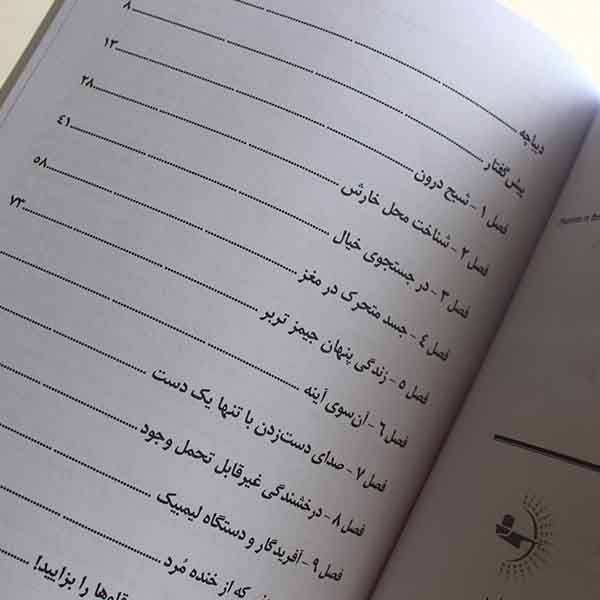 دیباچه
پیش گفتار ۸
فصل ۱ - شبح درون ۱۳
فصل ۲ - شناخت محل خارش ۲۸
فصل ۳ - در جستجوی خیال ۴۱
فصل ۴ - جسد متحرک در مغز ۵۸
فصل ۵ - زندگی پنهان جیمز تربر ۷۳
فصل ۶ - آن‌سوی آینه
فصل ۷ - صدای دست‌زدن با تنها یک دست
فصل ۸ - درخشندگی غیرقابل تحمل وجود
فصل ۹ - آفریدگار و دستگاه لیمبیک
که از خنده مُرد
را بزایید!